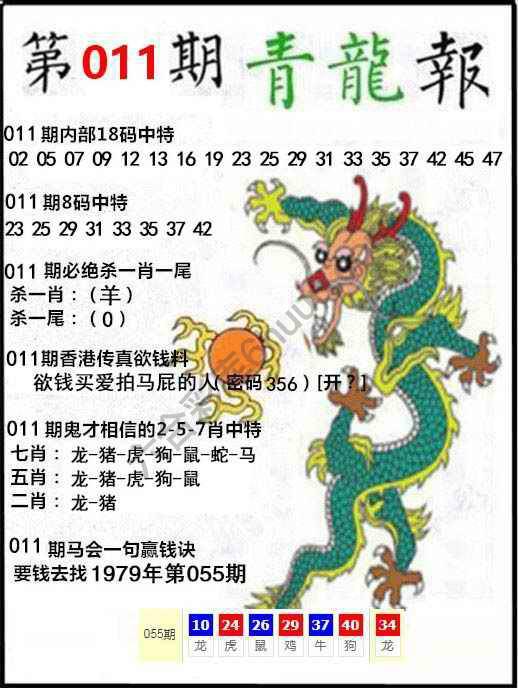 第011期青龍報
011期内部18码中特
02 05 07 09 12 13 16 19 23 25 29 31 33 35 37 42 45 47
011期8码中特
23 25 29 31 33 35 37 42
011期必绝杀一肖一尾
杀一肖：（羊）
杀一尾：（0）
011期香港传真欲钱料
欲钱买爱拍马屁的人（密码356）[开?]
011期鬼才相信的2-5-7肖中特
七肖：龙-猪-虎-狗-鼠-蛇-马
五肖：龙-猪-虎-狗-鼠
二肖：龙-猪
011期马会一句赢钱诀
要钱去找1979年第055期
055期 10 24 26 29 37 40 34
龙 虎 鼠 鸡 牛 狗 龙